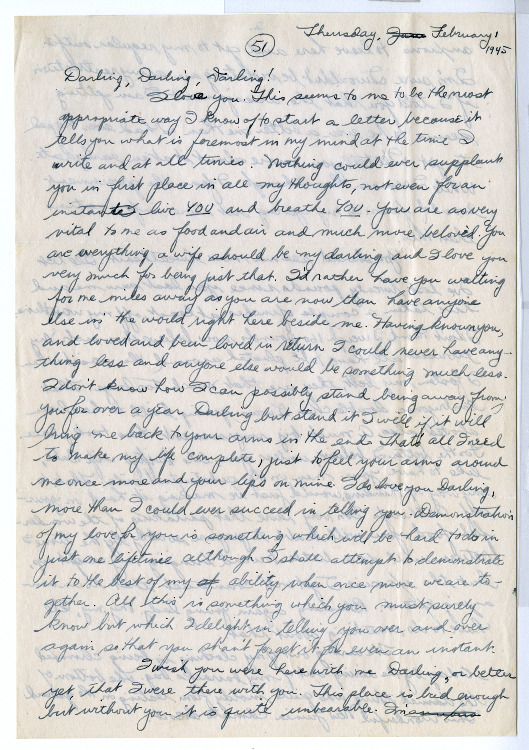 51
Thursday, June February 1
1945
Darling, Darling, Darling!
I love you. This seems to me to be the most
appropriate way I know of to start a letter because it
tells you what is foremost in my mind at the time I
write and at all times. Nothing could ever supplant
you in first place in all my thoughts, not even for an
instant. I live YOU and breathe YOU. You are as very
vital to me as food and air and much more beloved. You
are everything a wife should be my darling and I love you
very much for being just that. I'd rather have you waiting
for me miles away as you are now than have anyone
else in the world right here beside me. Having known you,
and loved and been loved in return I could never have any-
thing less and anyone else would be something much less.
I don't know how I can possibly stand being away from
you for over a year Darling but stand it I will if it will
bring me back to your arms in the end. That's all I need
to make my life complete, just to feel your arms around
me once more and your lips on mine. I do love you Darling,
more than I could ever succeed in telling you. Demonstration
of my love for you is something which will be hard to do in
just one lifetime although I shall attempt to demonstrate
it to the best of my of ability when once more we are to-
gether. All this is something which you must surely
know but which I delight in telling you over and over
again so that you shan't forget it for even an instant.
I wish you were here with me Darling, or better
yet, that I were there with you. This place is bad enough
but without you it is quite unbearable.